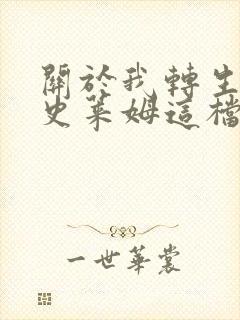 關於我轉生
史萊姆這檔
一世華裳